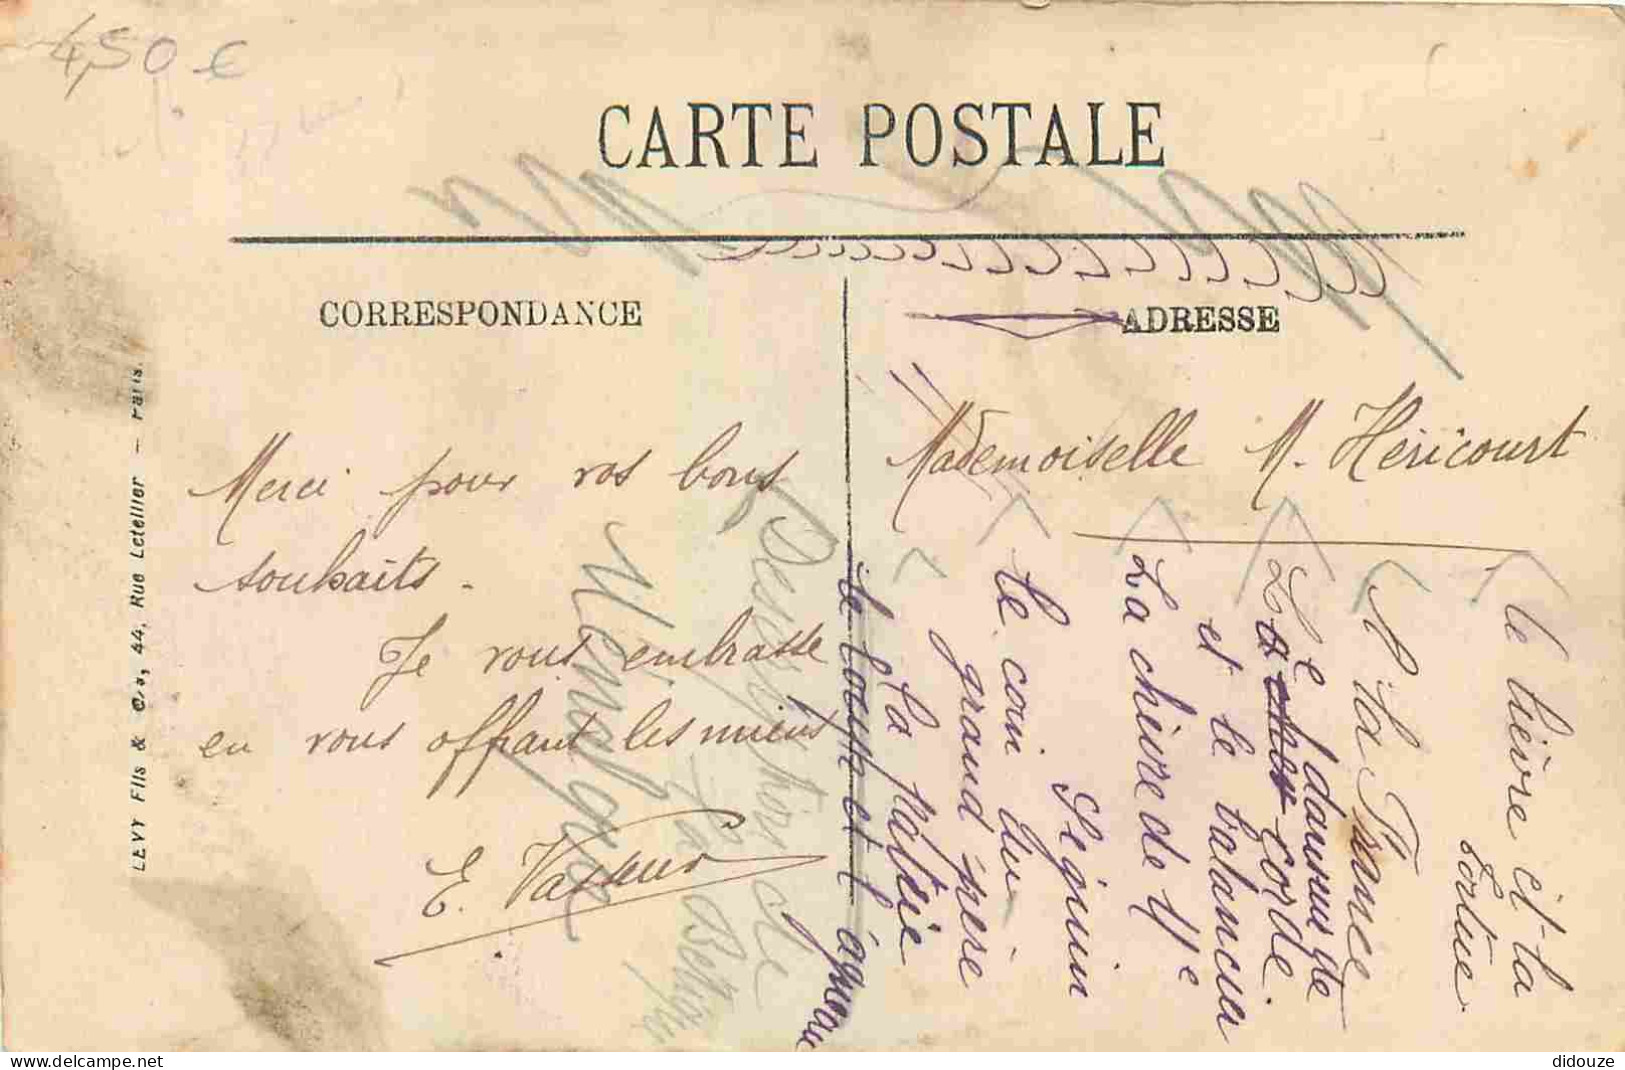 4,50 €
CARTE POSTALE
CORRESPONDANCE
ADRESSE
LEVY Fils & Cie, 44, Rue Letellier — Paris.
Merci pour vos bons
souhaits.
Je vous embrasse
en vous offrant les miens
E. Vasseur
Mademoiselle M. Héricourt
le lièvre et la
tortue
A la France
Le danseur de
La corde
et le balancier
La chèvre de Mr
Seguin
le coin du
grand père
La Patrie
le loup et l'agneau
Ménalque
de
La